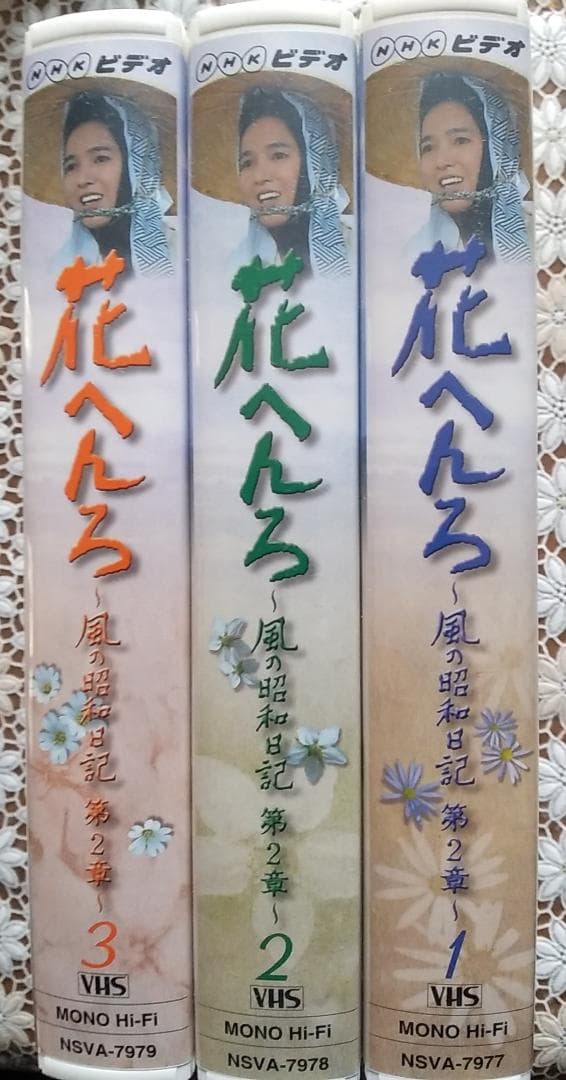 NHKビデオ
花へんろ
～風の昭和日記 第2章～
3
VHS
MONO Hi-Fi
NSVA-7979
NHKビデオ
花へんろ
～風の昭和日記 第2章～
2
VHS
MONO Hi-Fi
NSVA-7978
NHKビデオ
花へんろ
～風の昭和日記 第2章～
1
VHS
MONO Hi-Fi
NSVA-7977